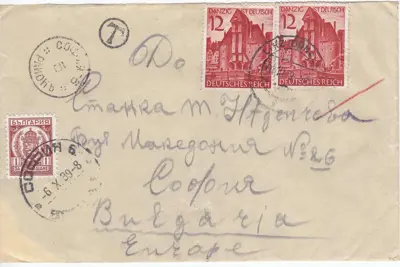 СОФИЯ
T
12 DANZIG IST DEUTSCH 12 DANZIG IST DEUTSCH
DEUTSCHES REICH DEUTSCHES REICH
До
Станка т.
Бул Македония № 26
БЪЛГАРИЯ
1
-6.X.39-8
София
Bulgaria
Europe